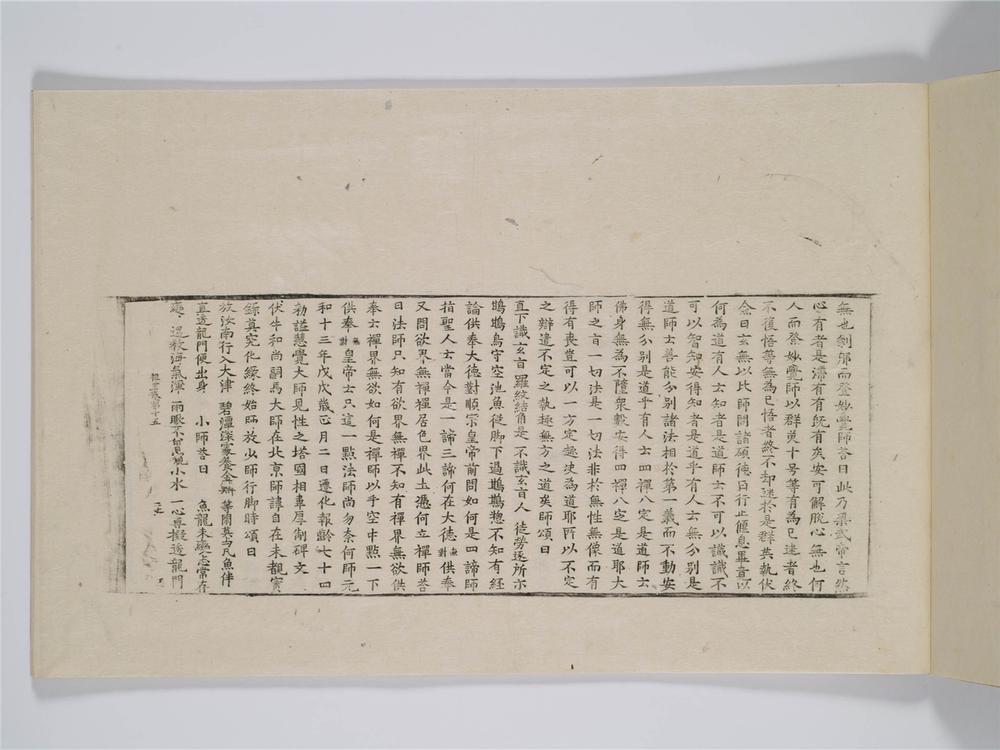 無也剎那而登妙覺師荅曰此乃梁武帝言然
心有者是滯有有既有矣安可解脫心無也何
人而登妙覺師以群萸十号等有為已迷者終
不復悟等無為已悟者終不却迷於是群英執伏
僉曰玄無以比師問諸碩德曰行止偃息畢竟以
何為道有人云知者是道師云不可以識識不
可以智知安得知者是道乎有人云無分別是
道師云善能分別諸法相於第一義而不動安
得無分別是道乎有人云四禪八定是道師云
佛身無為不墮衆數安得四禪八定是道耶大
師之旨一切法是一切法非於無性無像而有
得有喪豈可以一方定趣決為道耶所以不定
之辯遣不定之執趣無方之道矣師頌曰
直下識玄旨 羅紋結角是 不識玄旨人 徒勞逐所示
鵝鵝鳥守空池魚從脚下過鵝鵝惣不知有經
論供奉大德對順宗皇帝前問如何是四諦師
指聖人云當今是一諦三諦何在大德無對供奉
又問欲界無禪禪居色界此土憑何立禪師荅
曰法師只知有欲界無禪不知有禪界無欲供
奉云禪界無欲如何是禪師以手空中點一下
供奉無對皇帝云只這一點法師尚勿奈何師元
和十三年戊戌歲正月二日遷化報齡七十四
勑謚慧覺大師見性之塔國相韋厚制碑文
伏牛和尚嗣馬大師在北京師諱自在未覩實
錄莫究化緣終始師放少師行脚時頌曰
放汝南行入大津 碧潭深處養金鱗 等閑莫与凡魚伴
直透龍門便出身 小師荅曰 魚龍未變志常存
變 還教海氣渾 兩眼不曾窺小水 一心專擬透龍門
祖堂集卷十五